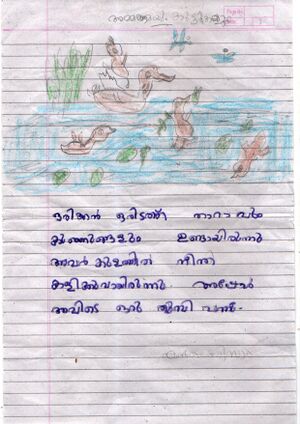 അമ്മയും കുട്ടികളും
ഒരിക്കൽ ഒരിടത്ത് താറാവും
കുഞ്ഞുങ്ങളും ഉണ്ടായിരുന്നു
അവർ കുളത്തിൽ നീന്തി
കളിക്കുവായിരുന്നു. അപ്പോൾ
അവിടെ ഒരു തുമ്പി വന്നു.